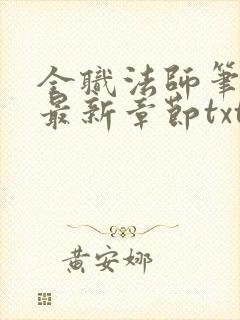 全職法師筆
最新章節txt
黃安娜